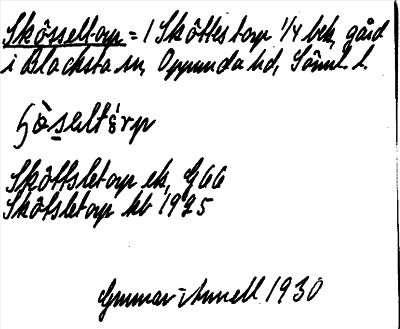 Skösseltorp = 1 Sköttestorp 1/4 bek, gård
i Blacksta sn, Oppunda hd, Söml. l.
Skôttsletorp ek, G66
Skötsletorp kb 1925
Gunnar Annell 1930